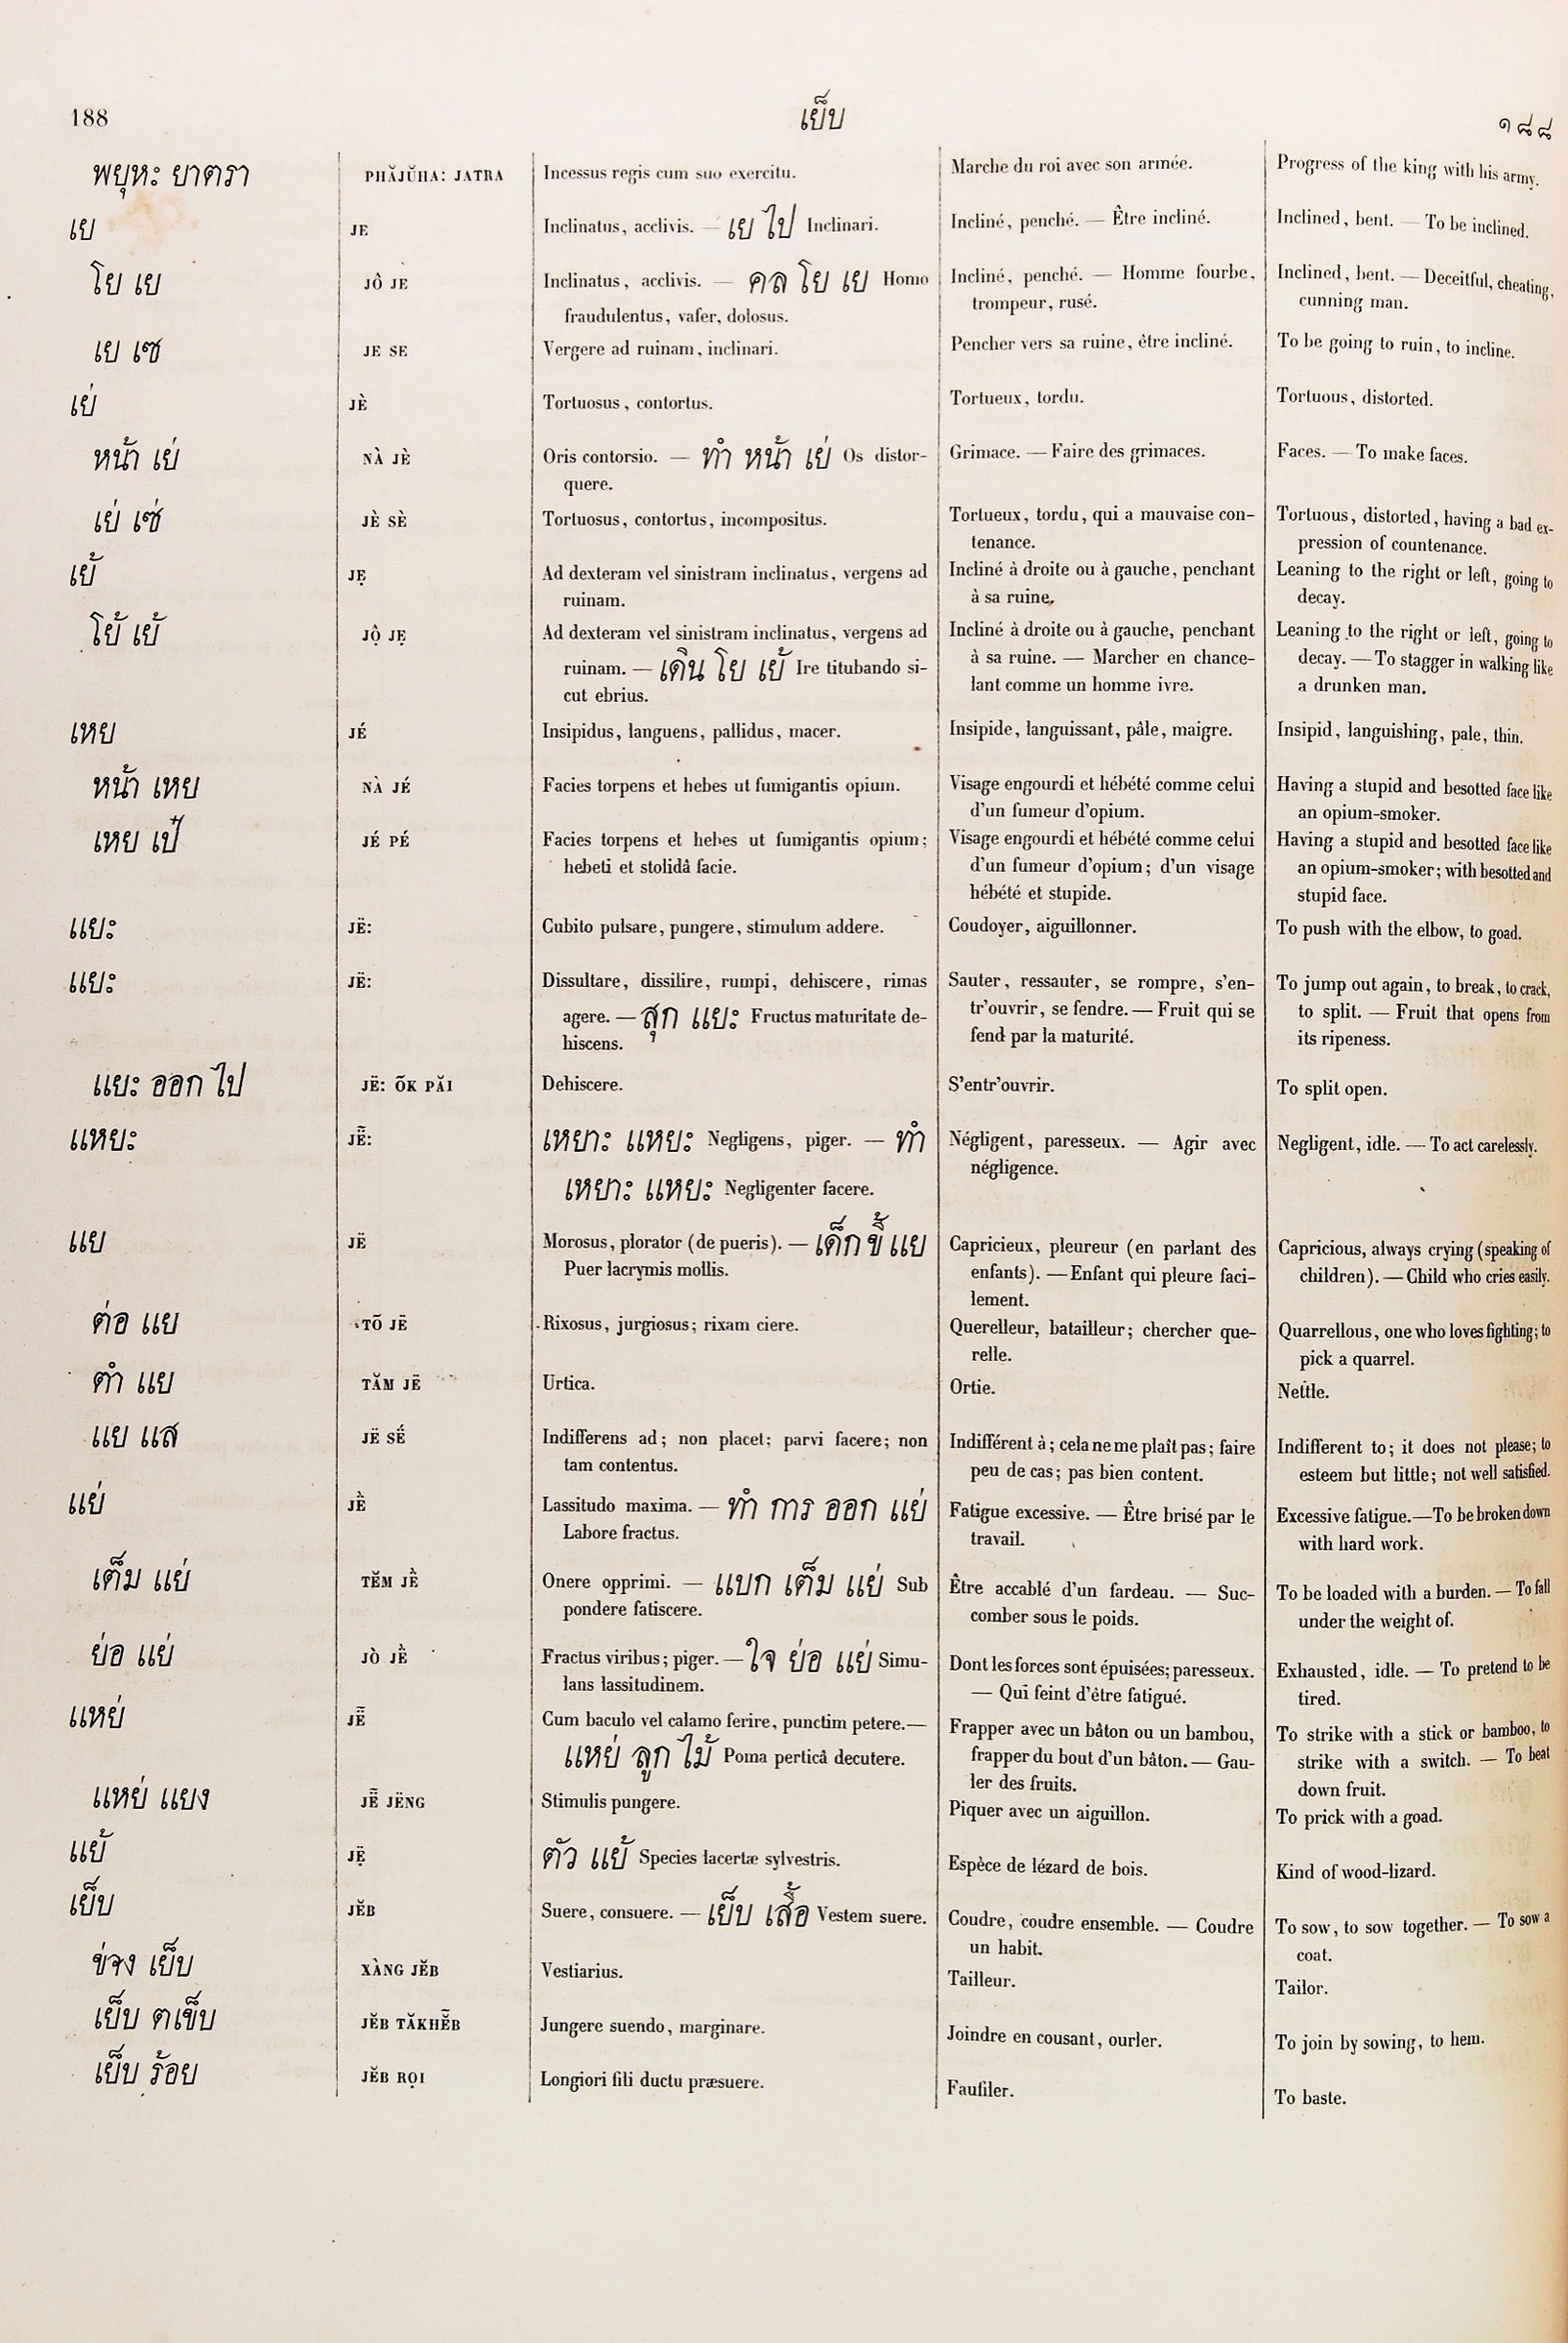 188 เย็บ ๑๘๘
พยุหะ ยาตรา PHĂJŬHA: JATRA Incessus regis cum suo exercitu. Marche du roi avec son armée. Progress of the king with his army.
เย JE Inclinatus, acclivis. — เย ไป Inclinari. Incliné, penché. — Être incliné. Inclined, bent. — To be inclined.
โย เย JÔ JE Inclinatus, acclivis. — คล โย เย Homo Incliné, penché. — Homme fourbe, Inclined, bent. — Deceitful, cheating,
fraudulentus, vafer, dolosus. trompeur, rusé. cunning man.
เย เซ JE SE Vergere ad ruinam, inclinari. Pencher vers sa ruine, être incliné. To be going to ruin, to incline.
เย่ JÈ Tortuosus, contortus. Tortueux, tordu. Tortuous, distorted.
หน้า เย่ NÀ JÈ Oris contorsio. — ทำ หน้า เย่ Os distor- Grimace. — Faire des grimaces. Faces. — To make faces.
quere.
เย่ เซ่ JÈ SÈ Tortuosus, contortus, incompositus. Tortueux, tordu, qui a mauvaise con- Tortuous, distorted, having a bad ex-
tenance. pression of countenance.
เย้ JẸ Ad dexteram vel sinistram inclinatus, vergens ad Incliné à droite ou à gauche, penchant Leaning to the right or left, going to
ruinam. à sa ruine. decay.
โย้ เย้ JỘ JẸ Ad dexteram vel sinistram inclinatus, vergens ad Incliné à droite ou à gauche, penchant Leaning to the right or left, going to
ruinam. — เดิน โย เย้ Ire titubando si- à sa ruine. — Marcher en chance- decay. — To stagger in walking like
cut ebrius. lant comme un homme ivre. a drunken man.
เหย JÉ Insipidus, languens, pallidus, macer. Insipide, languissant, pâle, maigre. Insipid, languishing, pale, thin.
หน้า เหย NÀ JÉ Facies torpens et hebes ut fumigantis opium. Visage engourdi et hébété comme celui Having a stupid and besotted face like
d'un fumeur d'opium. an opium-smoker.
เหย เป๋ JÉ PÉ Facies torpens et hebes ut fumigantis opium; Visage engourdi et hébété comme celui Having a stupid and besotted face like
hebeti et stolidâ facie. d'un fumeur d'opium; d'un visage an opium-smoker; with besotted and
hébété et stupide. stupid face.
แยะ JË: Cubito pulsare, pungere, stimulum addere. Coudoyer, aiguillonner. To push with the elbow, to goad.
แยะ JË: Dissultare, dissilire, rumpi, dehiscere, rimas Sauter, ressauter, se rompre, s'en- To jump out again, to break, to crack,
agere. — สุก แยะ Fructus maturitate de- tr'ouvrir, se fendre. — Fruit qui se to split. — Fruit that opens from
hiscens. fend par la maturité. its ripeness.
แยะ ออก ไป JË: ÕK PĂI Dehiscere. S'entr'ouvrir. To split open.
แหยะ JË̃: เหยาะ แหยะ Negligens, piger. — ทำ Négligent, paresseux. — Agir avec Negligent, idle. — To act carelessly.
เหยาะ แหยะ Negligenter facere. négligence.
แย JË Morosus, plorator (de pueris). — เด็ก ขี้ แย Capricieux, pleureur (en parlant des Capricious, always crying (speaking of
Puer lacrymis mollis. enfants). — Enfant qui pleure faci- children). — Child who cries easily.
lement.
ต่อ แย TÕ JË Rixosus, jurgiosus; rixam ciere. Querelleur, batailleur; chercher que- Quarrellous, one who loves fighting; to
relle. pick a quarrel.
ตำ แย TĂM JË Urtica. Ortie. Nettle.
แย แส JË SË́ Indifferens ad; non placet; parvi facere; non Indifférent à; cela ne me plaît pas; faire Indifferent to; it does not please; to
tam contentus. peu de cas; pas bien content. esteem but little; not well satisfied.
แย่ JË̀ Lassitudo maxima. — ทำ การ ออก แย่ Fatigue excessive. — Être brisé par le Excessive fatigue. — To be broken down
Labore fractus. travail. with hard work.
เต็ม แย่ TĔM JË̀ Onere opprimi. — แบก เต็ม แย่ Sub Être accablé d'un fardeau. — Suc- To be loaded with a burden. — To fall
pondere fatiscere. comber sous le poids. under the weight of.
ย่อ แย่ JÒ JË̀ Fractus viribus; piger. — ใจ ย่อ แย่ Simu- Dont les forces sont épuisées; paresseux. Exhausted, idle. — To pretend to be
lans lassitudinem. — Qui feint d'être fatigué. tired.
แหย่ JË̃ Cum baculo vel calamo ferire, punctim petere. — Frapper avec un bâton ou un bambou, To strike with a stick or bamboo, to
แหย่ ลูก ไม้ Poma perticâ decutere. frapper du bout d'un bâton. — Gau- strike with a switch. — To beat
ler des fruits. down fruit.
แหย่ แยง JË̃ JËNG Stimulis pungere. Piquer avec un aiguillon. To prick with a goad.
แย้ JẸ̈ ตัว แย้ Species lacertæ sylvestris. Espèce de lézard de bois. Kind of wood-lizard.
เย็บ JĔB Suere, consuere. — เย็บ เสื้อ Vestem suere. Coudre, coudre ensemble. — Coudre To sow, to sow together. — To sow a
un habit. coat.
ช่าง เย็บ XÀNG JĔB Vestiarius. Tailleur. Tailor.
เย็บ ตเข็บ JĔB TĂKHĔ̃B Jungere suendo, marginare. Joindre en cousant, ourler. To join by sowing, to hem.
เย็บ ร้อย JĔB RỌI Longiori fili ductu præsuere. Faufiler. To baste.